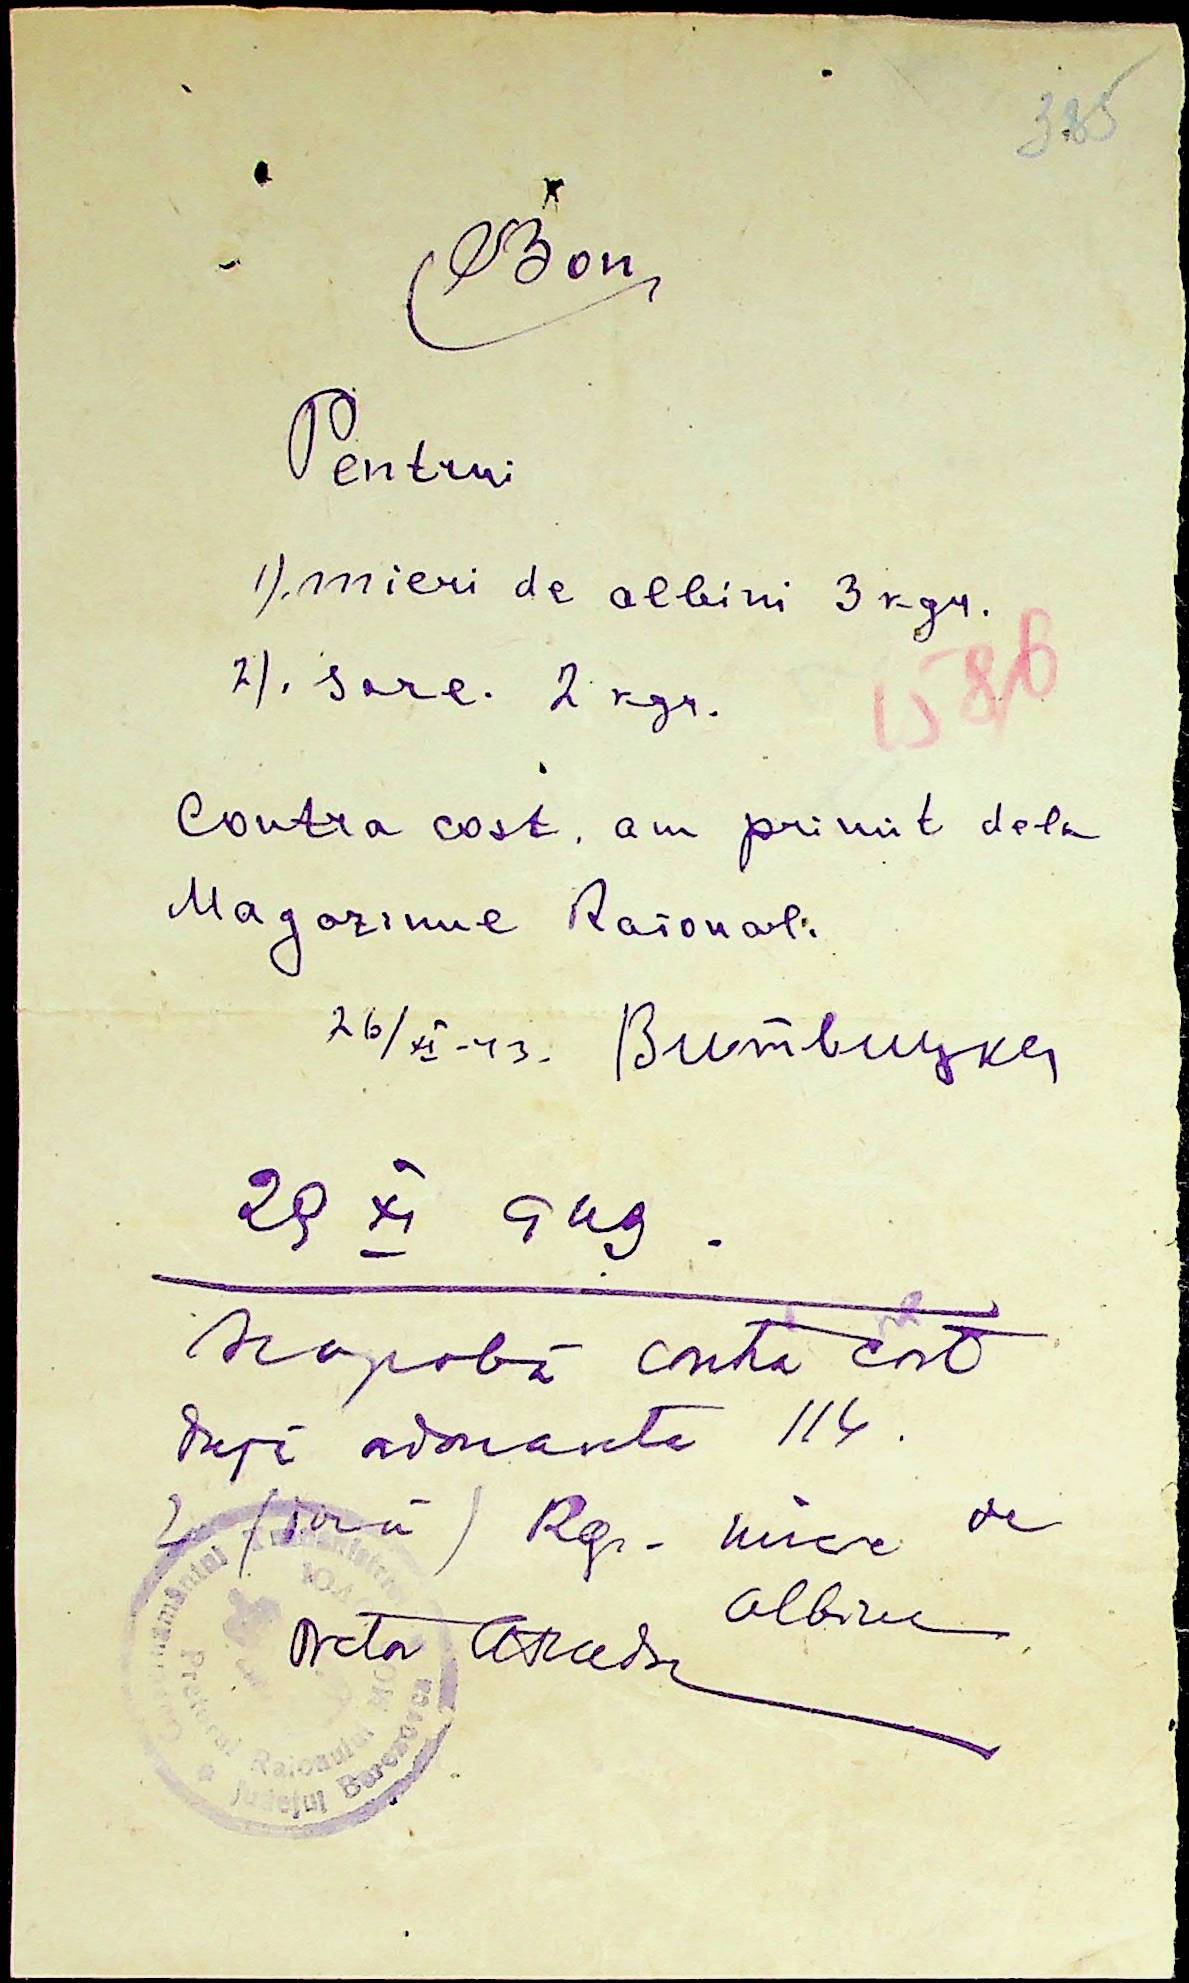 385
Bon
Pentrui
1). mieri de albini 3 kgr.
2). sare. 2 kgr.
1586
Contra cost. am primit dela
Magazinue Raional.
26/XI-43. Витвицкая
29 XI 943.
Se aprobă contra cost
după ordonanta 114.
2 (două) Kgr. miere de
albine
Pretor
Guvernământul Transnistriei
Pretorul Raionului
Județul Berezovca